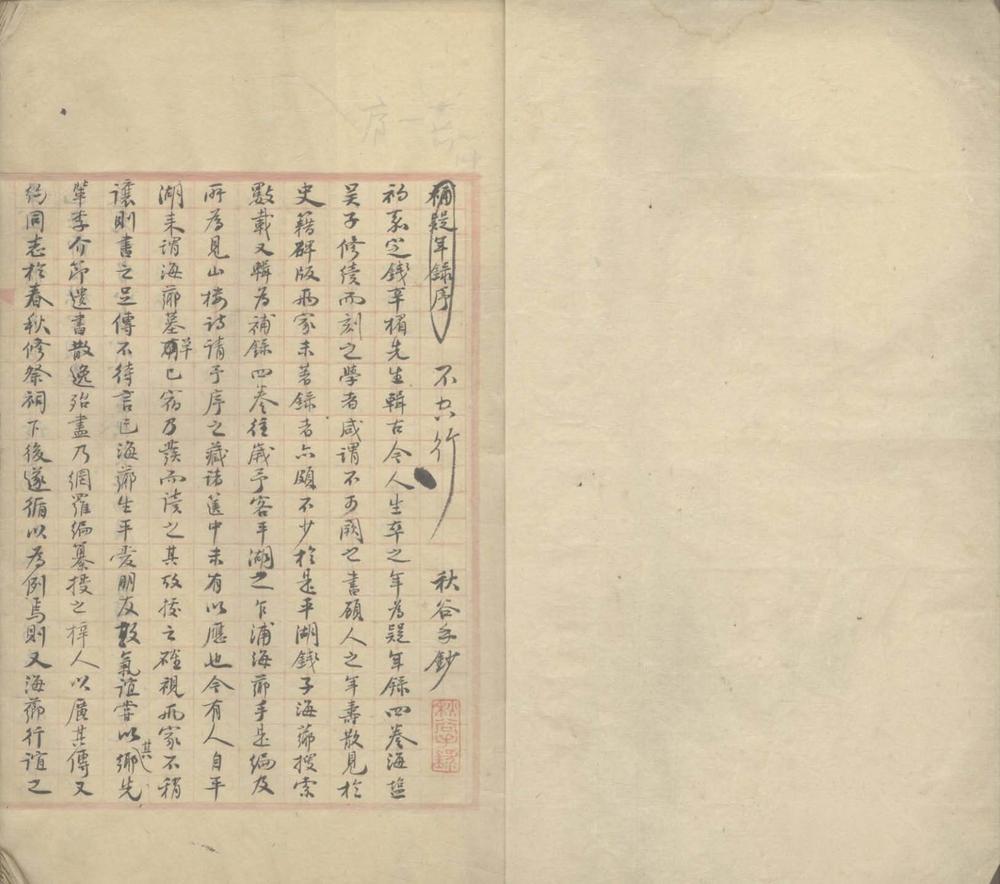 補疑年錄序 不空行 秋谷手鈔
初嘉定錢辛楣先生輯古今人生卒之年為疑年錄四卷海鹽
吳子修續而刻之學者咸謂不可闕之書顧人之年壽散見於
史籍碑版兩家未著錄者亦頗不少於是平湖錢子海薌搜索
數載又輯為補錄四卷往歲予客平湖之乍浦海薌手是編及
所為見山樓詩請予序之藏諸篋中未有以應也今有人自平
湖來謂海薌墓草已宿乃發而讀之其攷據之確視兩家不稍
讓則書之足傳不待言已海薌生平愛朋友敦氣誼嘗以其鄉先
輩李介節遺書散逸殆盡乃網羅編纂授之梓人以廣其傳又
約同志於春秋修祭祠下後遂循以為例焉則又海薌行誼之